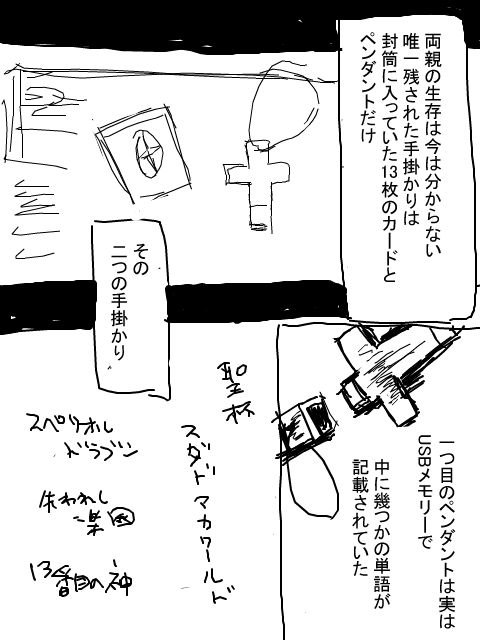 両親の生存は今は分からない
唯一残された手掛かりは
封筒に入っていた13枚のカードと
ペンダントだけ
その
二つの手掛かり
一つ目のペンダントは実は
USBメモリーで
中に幾つかの単語が
記載されていた
聖杯
スダドアカワールド
スペリオル
ドラゴン
失われし
楽園
13番目の神